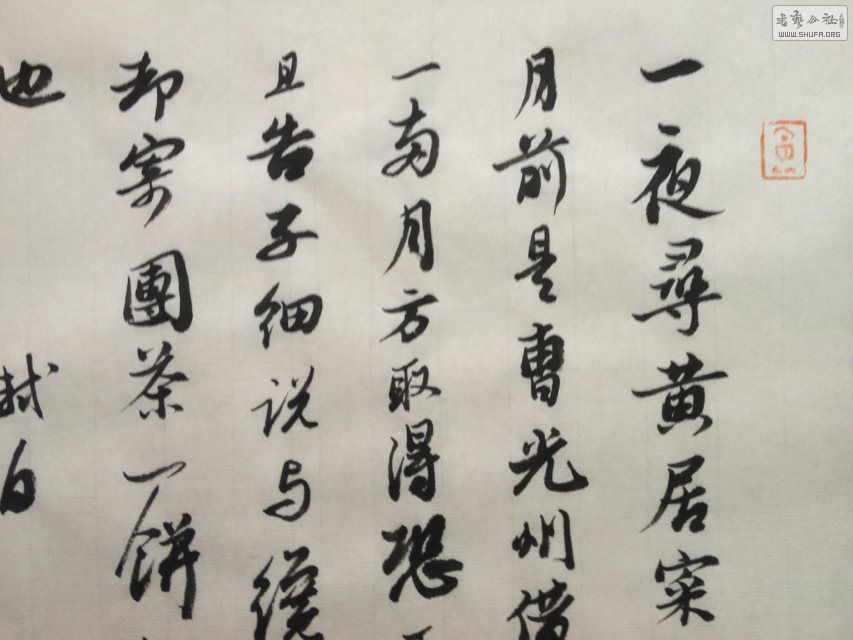 一夜尋黄居寀
月前是曹光州借
一两月方取得恐
且告子细说与纔
却寄團茶一餅
也 軾白
WWW.SHUFA.ORG